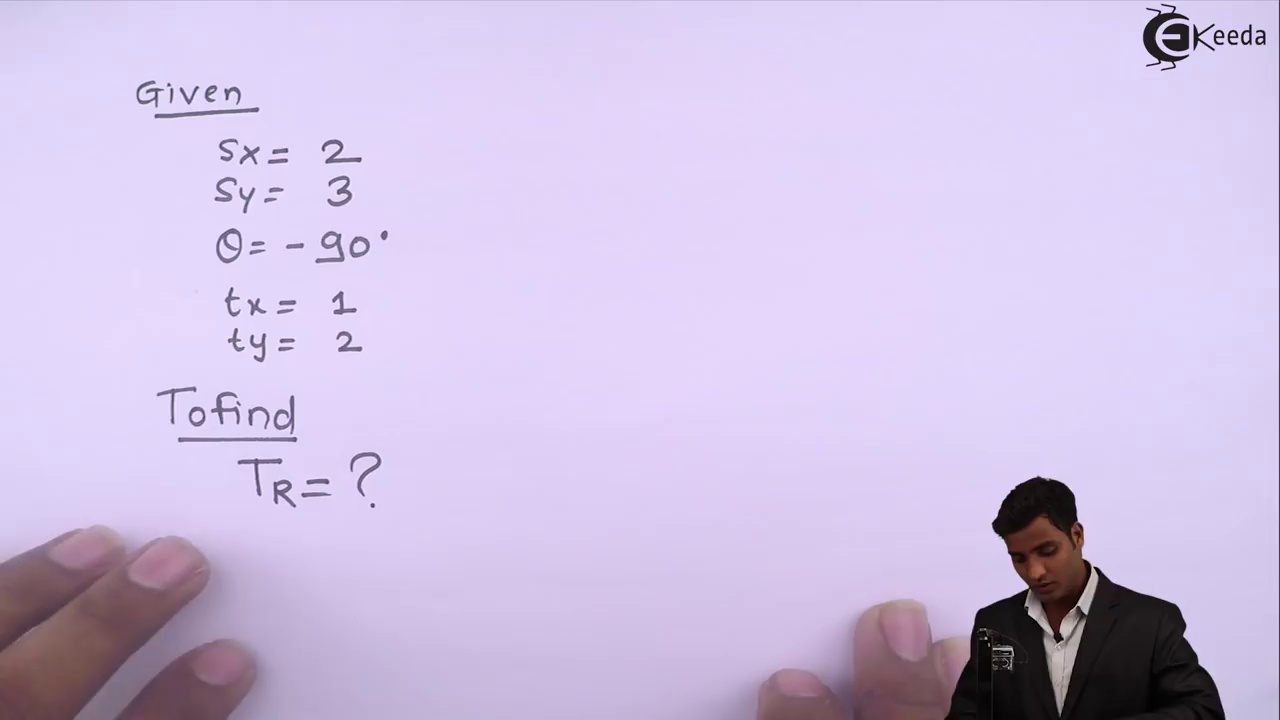 EKeeda
Given
Sx = 2
Sy = 3
θ = - 90°
tx = 1
ty = 2
To find
TR = ?